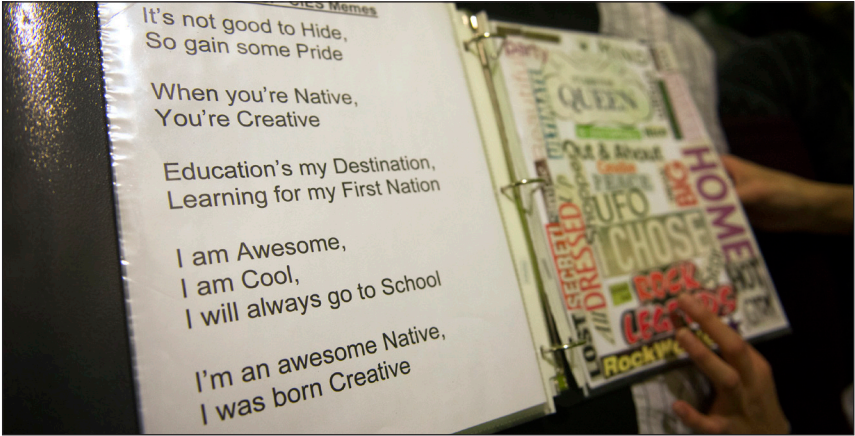 Memes
It's not good to Hide,
So gain some Pride
When you're Native,
You're Creative
Education's my Destination,
Learning for my First Nation
I am Awesome,
I am Cool,
I will always go to School
I'm an awesome Native,
I was born Creative
party
QUEEN
Out & About
UFO
BIG
HOME
I CHOSE
SECRET
DRESSED
HOT
ROCK
LEGENDS
LOST